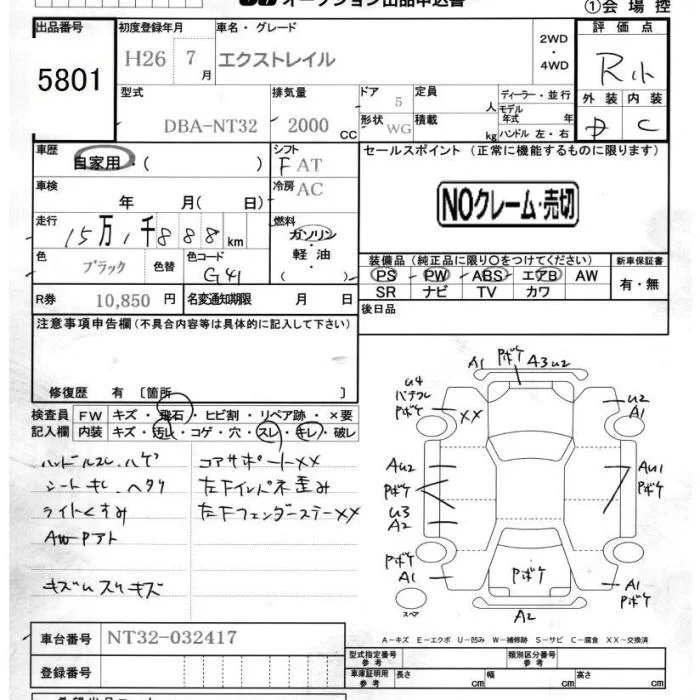 オークション出品申込書
①会場控
出品番号 5801
初度登録年月 H26 7月
車名・グレード エクストレイル
2WD・4WD
評価点 R小
外装 D 内装 C
型式 DBA-NT32
排気量 2000 CC
ドア 5
形状 WG
定員 人
積載 kg
ディーラー・並行
モデル年式 年
ハンドル 左・右
車歴 自家用・( )
シフト FAT
冷房 AC
セールスポイント(正常に機能するものに限ります)
NOクレーム・売切
車検 年 月( 日)
走行 15万1千888km
燃料 ガソリン・軽油・( )
色 ブラック 色替
色コード G41
装備品(純正品に限り○をつけてください)
PS PW ABS エアB AW
SR ナビ TV カワ
新車保証書
有・無
R券 10,850円
名変通知期限 月 日
後日品
注意事項申告欄(不具合内容等は具体的に記入して下さい)
修復歴 有〔箇所 〕
検査員記入欄
FW キズ・飛石・ヒビ割・リペア跡・×要
内装 キズ・汚レ・コゲ・穴・スレ・キレ・破レ
ハンドルスレ、ハゲ
シートキレ、ヘタリ
ライトくすみ
AWPアト
キズムスリキズ
コアサポートXX
左フインパネ歪み
左フフェンダーステーXX
A1 Pボケ A3U2
U4
Pボケ
XX
U2
A1
AU2
Pボケ
U3
A2
AU1
Pボケ
Pボケ
A1
Pボケ
A1
Pボケ
スペア
A2
A-キズ E-エクボ U-凹み W-補修跡 S-サビ C-腐食 XX-交換済
車台番号 NT32-032417
登録番号
型式指定番号 参考
類別区分番号 参考
車庫証明用 参考 長さ cm 幅 cm 高さ cm